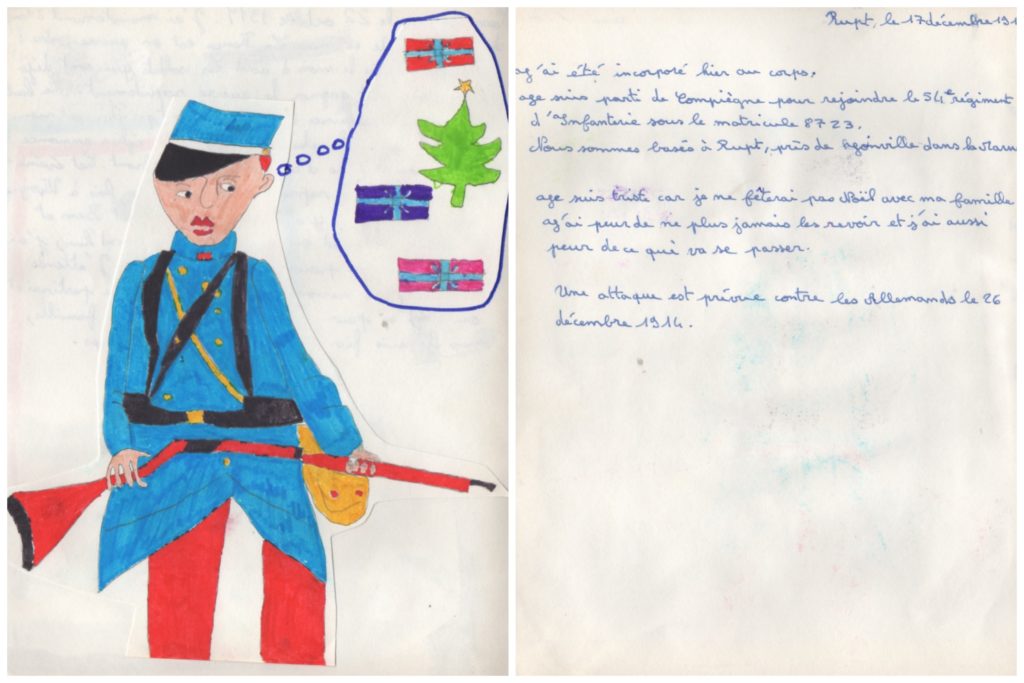 Rupt, le 17 décembre 191
J'ai été incorporé hier au corps.
Je suis parti de Compiègne pour rejoindre le 54e régiment
d'Infanterie sous le matricule 8723.
Nous sommes basés à Rupt, près de Joinville dans la Marn
Je suis triste car je ne fêterai pas Noël avec ma famille
J'ai peur de ne plus jamais les revoir et j'ai aussi
peur de ce qui va se passer.
Une attaque est prévue contre les Allemands le 26
décembre 1914.